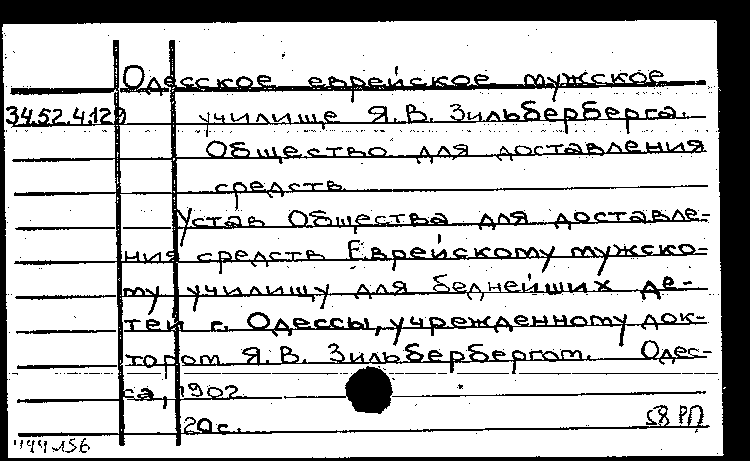 Одесское еврейское мужское
34.52.4.129 училище Я.В. Зильберберга.
Общество для доставления
средств
Устав Общества для доставле-
ния средств Еврейскому мужско-
му училищу для беднейших де-
тей г. Одессы, учрежденному док-
тором Я.В. Зильбербергом. Одес-
са, 1902
20с. 58 РП